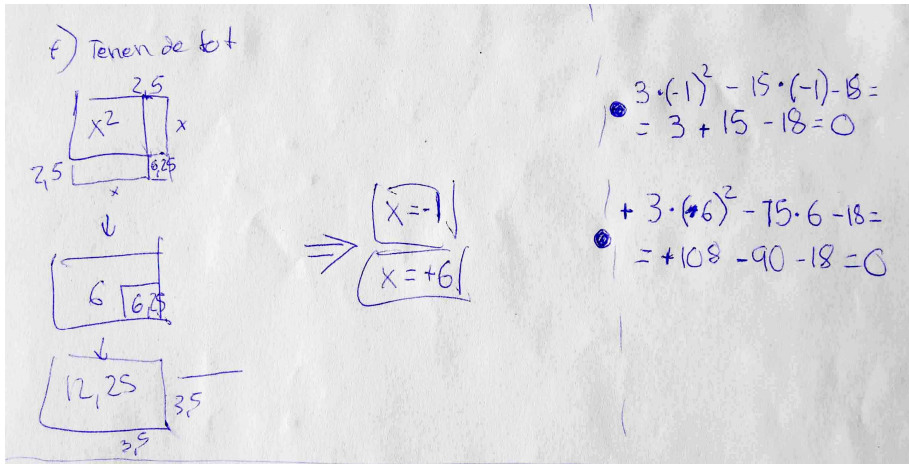 f) Tenen de tot
2,5
x²
x
2,5
6,25
x
↓
6
6,25
↓
12,25
3,5
3,5
⇒
x=-1
x=+6
3·(-1)² - 15·(-1)-18=
= 3 + 15 - 18 = 0
+ 3·(+6)² - 75·6 - 18=
= +108 - 90 - 18 = 0